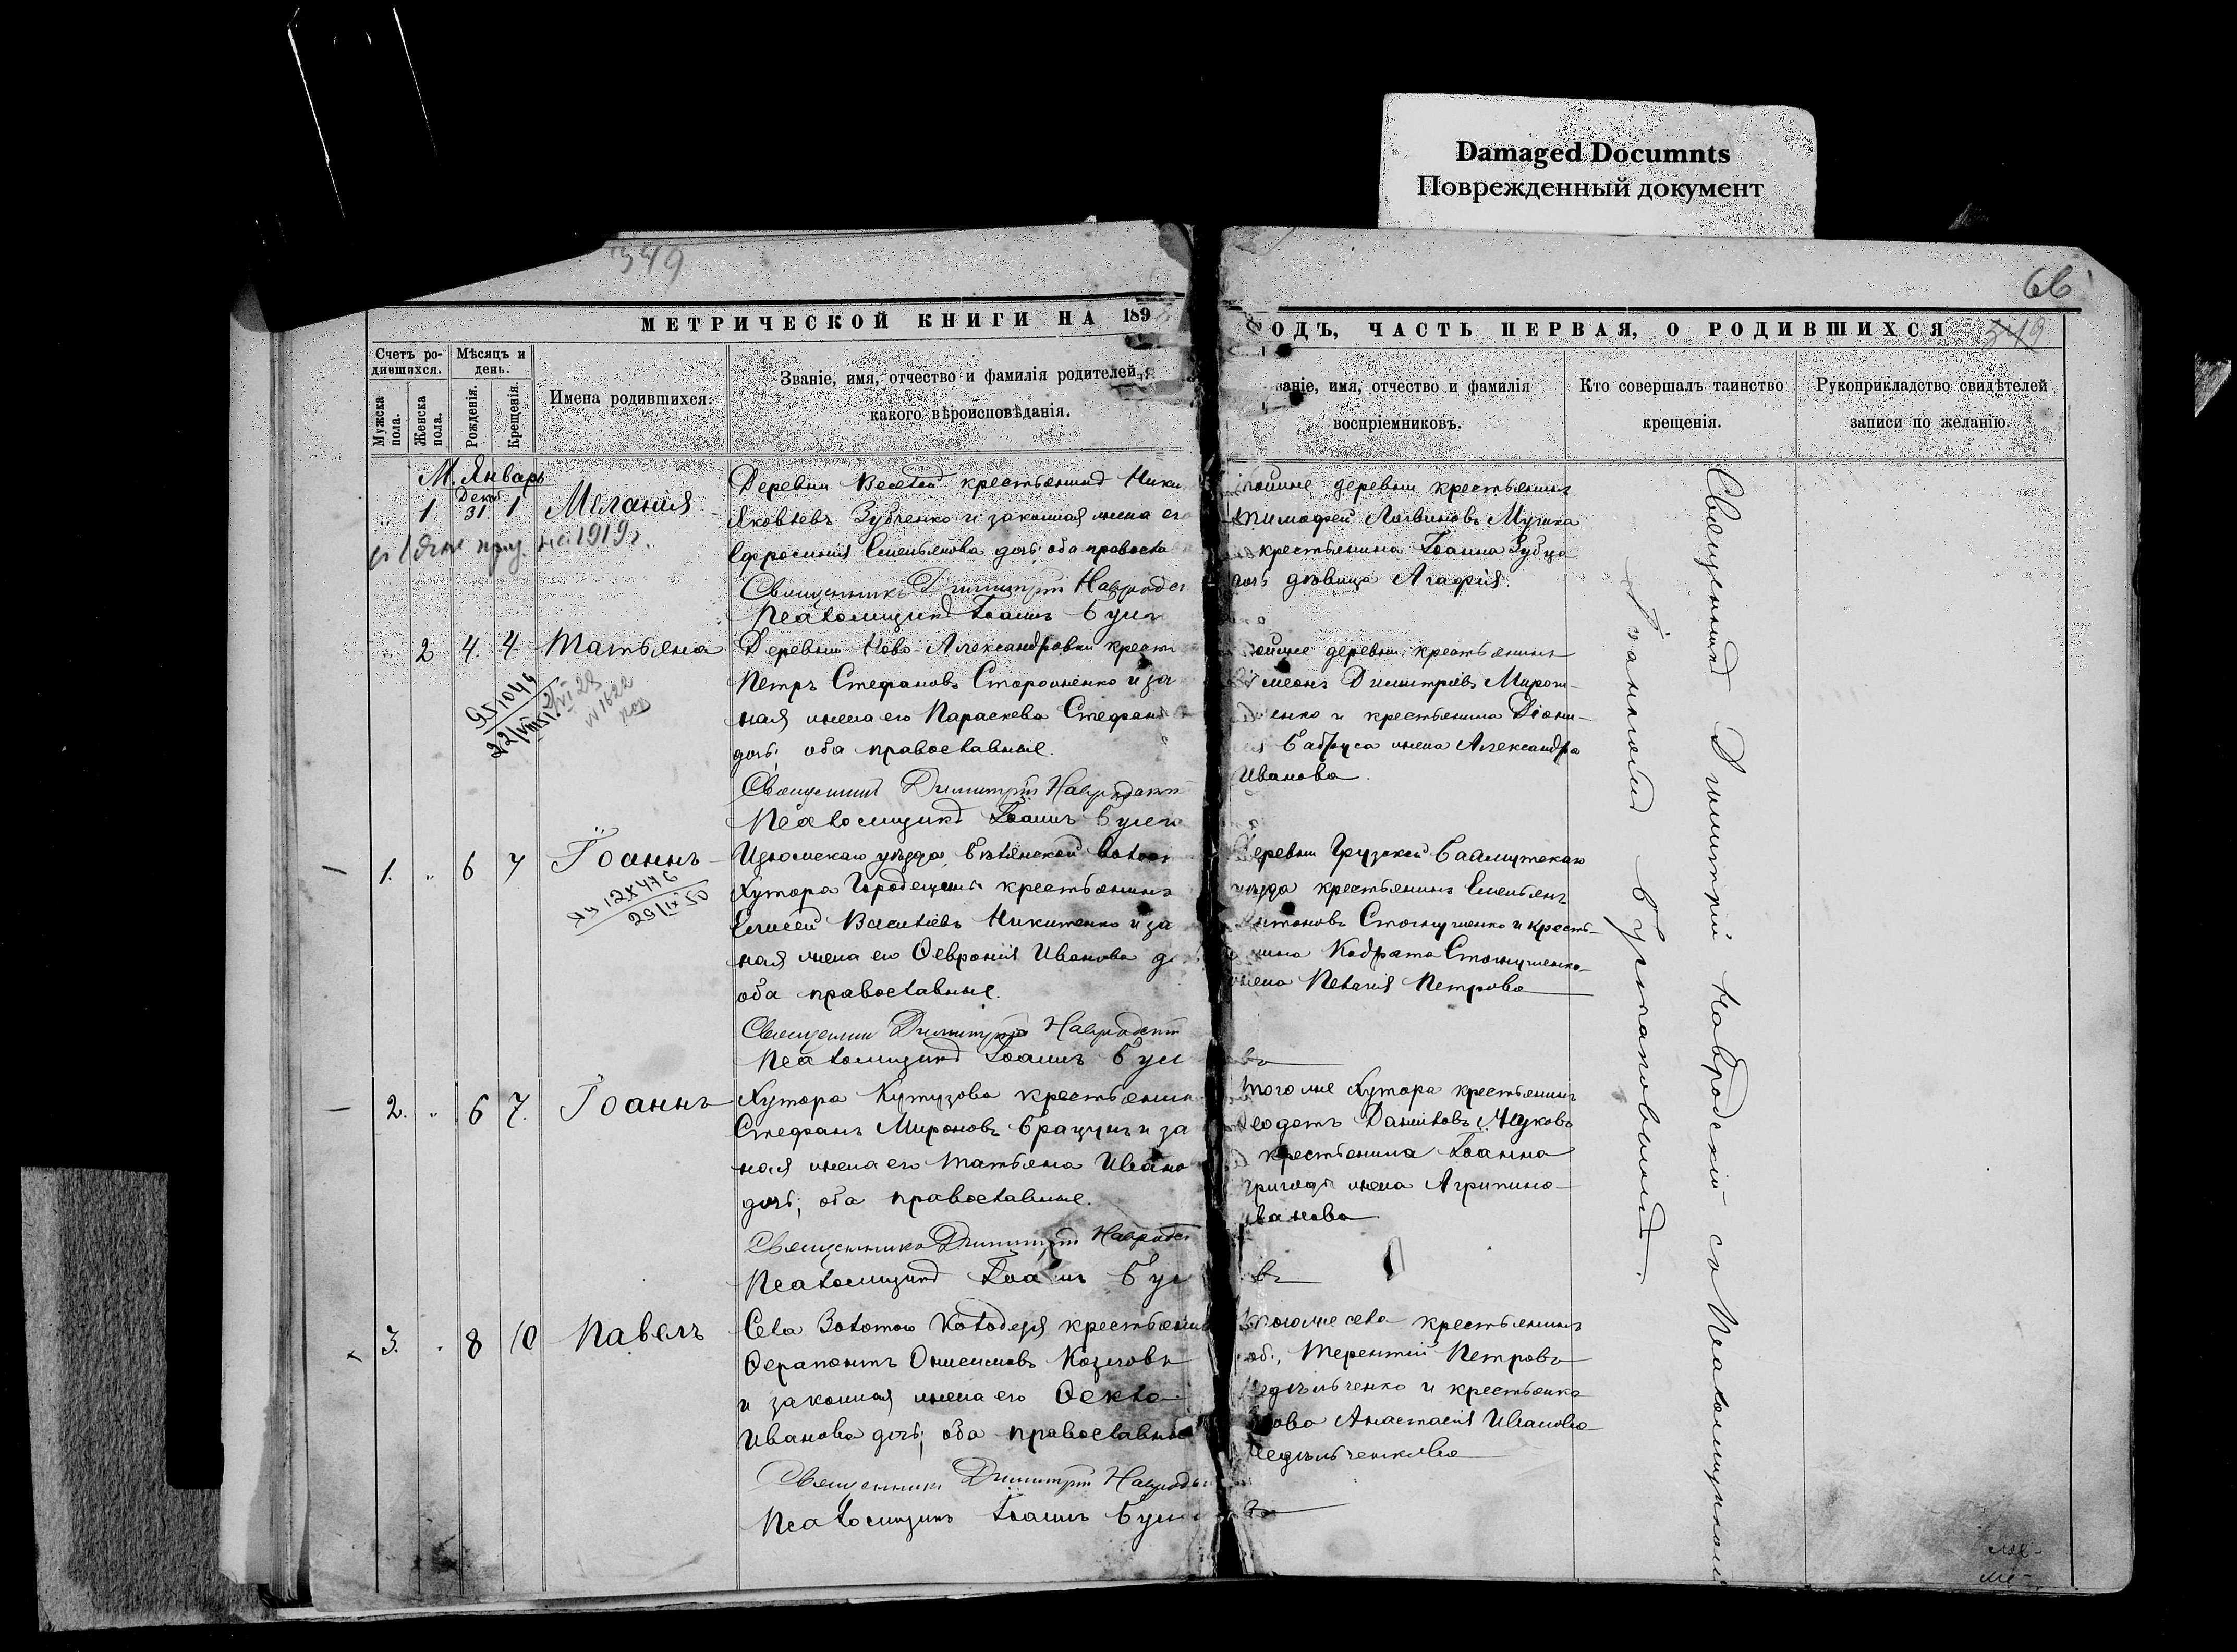 Damaged Documnts
Поврежденный документ
349
66
МЕТРИЧЕСКОЙ КНИГИ НА 189
ОДЪ, ЧАСТЬ ПЕРВАЯ, О РОДИВШИХСЯ 349
Счетъ ро-
дившихся.
Мѣсяцъ и
день.
Мужска
пола.
Женска
пола.
Рожденія.
Крещенія.
Имена родившихся.
Званіе, имя, отчество и фамилія родителей, и
какого вѣроисповѣданія.
ваніе, имя, отчество и фамилія
воспріемниковъ.
Кто совершалъ таинство
крещенія.
Рукоприкладство свидѣтелей
записи по желанію.
М. Январь
" 1 Декаб 31. 1 Меланія
1919 г.
Деревни Веселой крестьянинъ Ники
Яковлевъ Зубченко и законная жена его
Ефросинія Емельянова дочь; оба православ
Священникъ Димитрій Навродс
Псаломщикъ Іоаннъ Бул
деревни крестьянинъ
Тимофей Логвиновъ Мушка
крестьянина Іоанна Зубца
дочь дѣвица Агафія.
" 2 4. 4. Татьяна
Деревни Ново-Александровки крест
Петръ Стефановъ Стороженко и за
ная жена его Параскева Стефан
дочь; оба православные.
Священникъ Димитрій Навродск
Псаломщикъ Іоаннъ Бул
деревни крестьянинъ
Димитріевъ Мирош-
енко и крестьянина Діони-
жена Александра
Иванова.
1. " 6 7 Іоаннъ
29/IX 50
Изюмскаго уѣзда, волос
Хутора Городещени крестьянинъ
Елисей Васильевъ Никитенко и за
ная жена его Ѳевронія Иванова д
оба православные.
Священникъ Димитрій Навродск
Псаломщикъ Іоаннъ Бул
въ
Деревни Грузской Бахмутскаго
уѣзда крестьянинъ Емельянъ
Антоновъ и кресть-
нина Кодрата
жена Пелагія Петрова
2. " 6 7. Іоаннъ
Хутора Кутузова крестьянин
Стефанъ Мироновъ и за
ная жена его Татьяна Ивано
дочь; оба православные.
Священникъ Димитрій Навродс
Псаломщикъ Іоаннъ Бул
въ
Тогоже Хутора крестьянинъ
Ѳеодотъ Даниловъ Жуковъ
и крестьянина Іоанна
жена Агрипина
Иванова
3. " 8 10 Павелъ
Села Золотого Колодезя крестьянин
Ѳерапонтъ Онисимовъ Козловъ
и законная жена его Ѳекла
Иванова дочь; оба православные
Священникъ Димитрій Навродс
Псаломщикъ Іоаннъ Бул
въ
Тогоже села крестьянинъ
Терентій Петровъ
едѣльченко и крестьянка
вдова Анастасія Иванова
Недѣльченкова
Священникъ Димитрій Навродскій со Псаломщикомъ
Іоанномъ